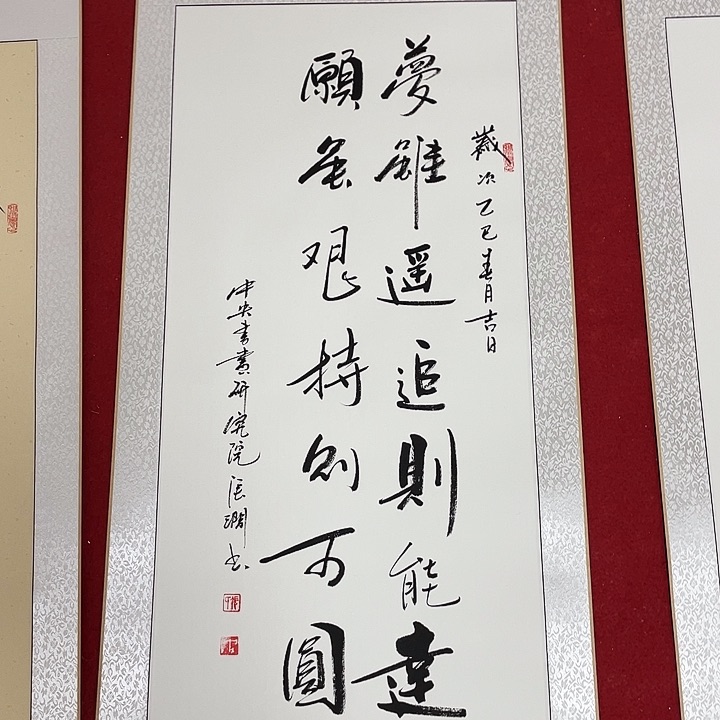 歲次乙巳春月吉日
夢雖遥追則能達
願虽艰持则可圓
中央書畫研究院張澗书